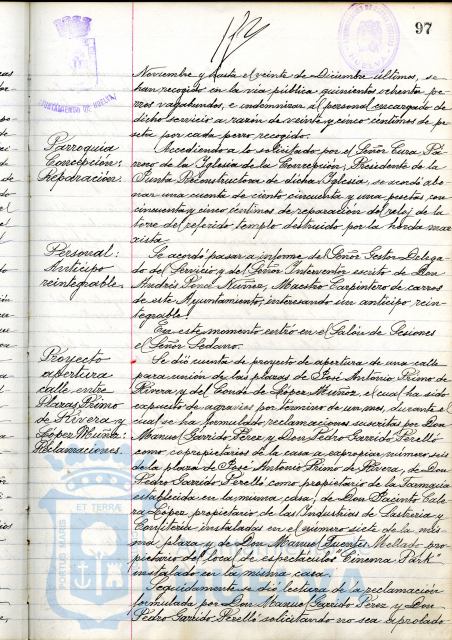 97
AYUNTAMIENTO DE HUELVA
HUELVA
Noviembre y hasta el veinte de Diciembre últimos, se
han recogido en la vía pública quinientos ochenta pe-
rros vagabundos, e indemnizar al personal encargado de
dicho servicio a razón de veinte y cinco céntimos de pe-
seta por cada perro recogido.
Parroquia
Concepción:
Reparación.
Accediendo a lo solicitado por el Señor Cura Pá-
rroco de la Iglesia de la Concepción, Presidente de la
Junta Reconstructora de dicha Iglesia, se acordó abo-
nar una cuenta de ciento cincuenta y una pesetas con
cincuenta y cinco céntimos de reparación del reloj de la
torre del referido templo destruido por la horda mar-
xista.
Personal:
Anticipo
reintegrable
Se acordó pasar a informe del Señor Gestor Delega-
do del Servicio y del Señor Interventor escrito de Don
Andrés Ponce Núñez, Maestro Carpintero de carros
de este Ayuntamiento, interesando un anticipo rein-
tegrable.
En este momento entró en el Salón de Sesiones
el Señor Sedano.
Proyecto
apertura
calle entre
Plazas Primo
de Rivera y
López Muñoz:
Reclamaciones.
Se dió cuenta de proyecto de apertura de una calle
para unión de las plazas de José Antonio Primo de
Rivera y del Conde de López Muñoz, el cual ha sido
expuesto de agravios por término de un mes, durante el
cual se ha formulado reclamaciones suscritas por Don
Manuel Garrido Pérez y Don Pedro Garrido Perelló
como copropietarios de la casa a expropiar número seis
de la plaza de José Antonio Primo de Rivera, de Don
Pedro Garrido Perelló como propietario de la
establecida en la misma casa; de Don Jacinto
López, propietario de las Industrias de Pastelería y
Confitería instaladas en el número siete de la mis-
ma plaza y de Don Manuel Fuentes pro-
pietario del local de espectáculos "Cinema Park"
instalado en la misma casa.
Seguidamente se dió lectura de la reclamación
formulada por Don Manuel Garrido Pérez y Don
Pedro Garrido Perelló solicitando no sea aprobado
PORTUS MARIS ET TERRÆ